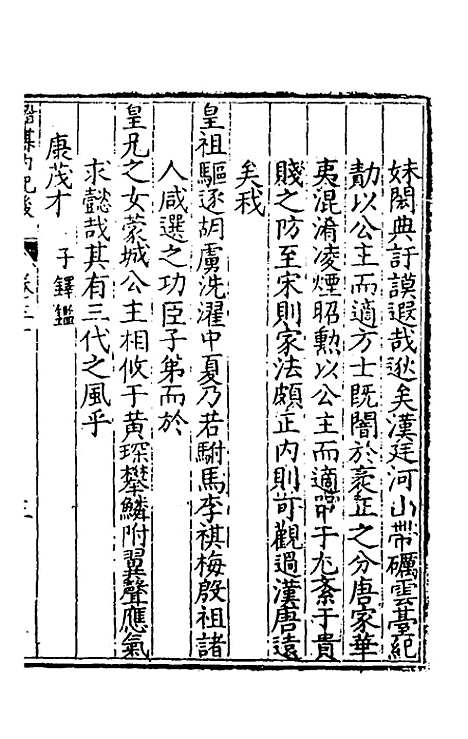 妹閎典訏謨遐哉逖矣漢廷河山帶礪雲臺紀
勣以公主而適方士既闇於衺正之分唐家華
夷混淆凌煙昭勲以公主而適 尤紊于貴
賤之防至宋則家法頗正内則可觀過漢唐遠
矣我
皇祖驅逐胡虜洗濯中夏乃若駙馬李祺梅殷祖諸
人咸選之功臣子弟而於
皇兄之女蒙城公主相攸于黄琛攀鱗附翼聲應氣
求懿哉其有三代之風乎
康茂才 子鐸鑑
卷三 三